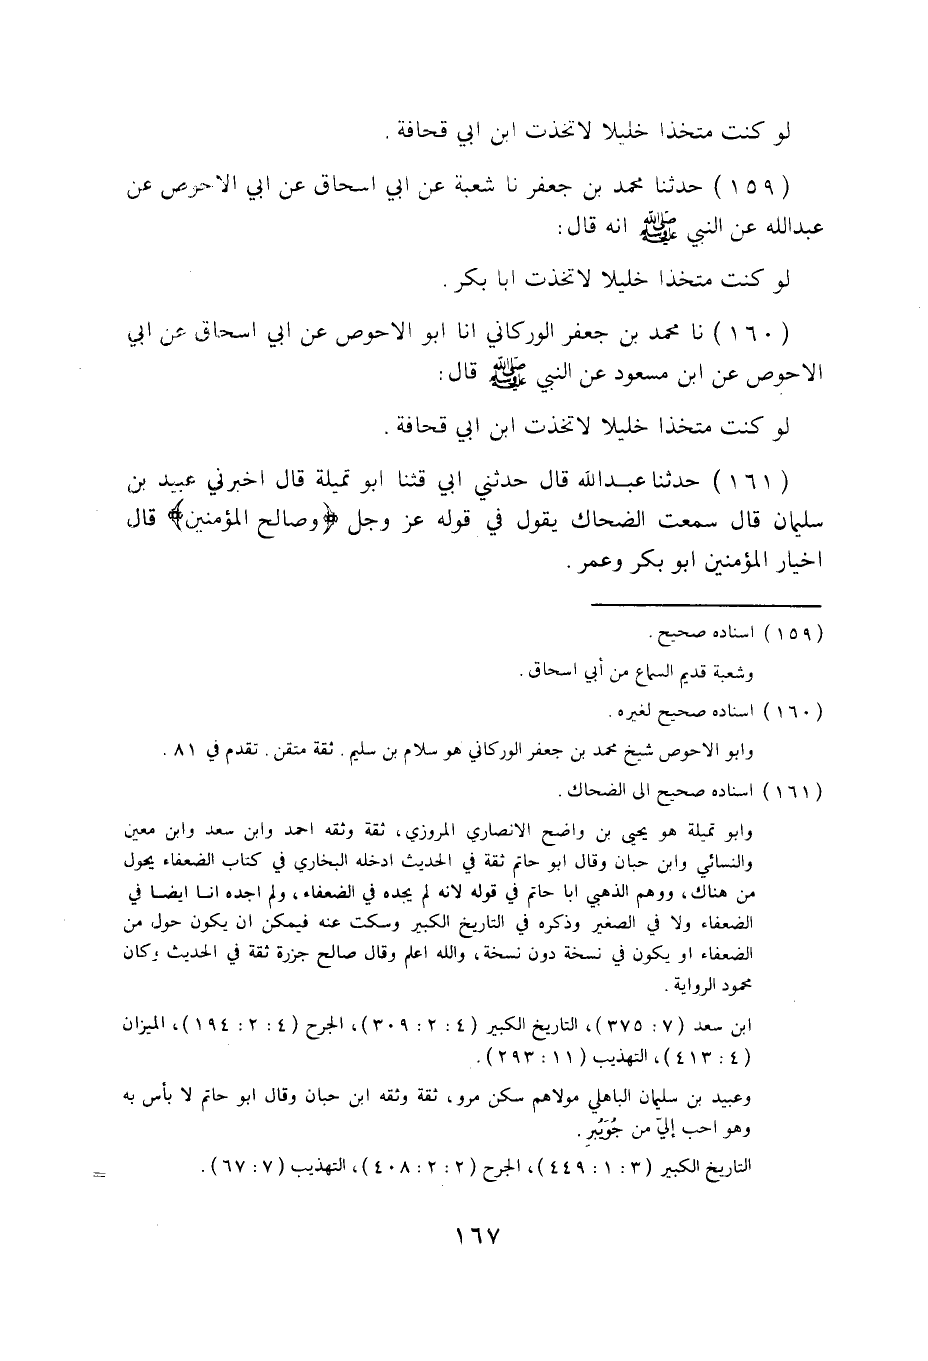 لو كنت متخذا خليلا لاتخذت ابن ابي قحافة .
( ١٥٩ ) حدثنا محمد بن جعفر نا شعبة عن ابي اسحاق عن ابي الاحوص عن
عبدالله عن النبي ﷺ انه قال :
لو كنت متخذا خليلا لاتخذت ابا بكر .
( ١٦٠ ) نا محمد بن جعفر الوركاني انا ابو الاحوص عن ابي اسحاق عن ابي
الاحوص عن ابن مسعود عن النبي ﷺ قال :
لو كنت متخذا خليلا لاتخذت ابن ابي قحافة .
( ١٦١ ) حدثنا عبدالله قال حدثني ابي قثنا ابو تميلة قال اخبرني عبيد بن
سليمان قال سمعت الضحاك يقول في قوله عز وجل ﴿وصالح المؤمنين﴾ قال
اخيار المؤمنين ابو بكر وعمر .
( ١٥٩ ) اسناده صحيح .
وشعبة قديم السماع من أبي اسحاق .
( ١٦٠ ) اسناده صحيح لغيره .
وابو الاحوص شيخ محمد بن جعفر الوركاني هو سلام بن سليم . ثقة متقن . تقدم في ٨١ .
( ١٦١ ) اسناده صحيح الى الضحاك .
وابو تميلة هو يحيى بن واضح الانصاري المروزي، ثقة وثقه احمد وابن سعد وابن معين
والنسائي وابن حبان وقال ابو حاتم ثقة في الحديث ادخله البخاري في كتاب الضعفاء يحول
من هناك، ووهم الذهبي ابا حاتم في قوله لانه لم يجده في الضعفاء، ولم اجده انا ايضا في
الضعفاء ولا في الصغير وذكره في التاريخ الكبير وسكت عنه فيمكن ان يكون حول من
الضعفاء او يكون في نسخة دون نسخة، والله اعلم وقال صالح جزرة ثقة في الحديث وكان
محمود الرواية .
ابن سعد ( ٧ : ٣٧٥ )، التاريخ الكبير ( ٤ : ٢ : ٣٠٩ )، الجرح ( ٤ : ٢ : ١٩٤ )، الميزان
( ٤ : ٤١٣ )، التهذيب ( ١١ : ٢٩٣ ) .
وعبيد بن سليمان الباهلي مولاهم سكن مرو، ثقة وثقه ابن حبان وقال ابو حاتم لا بأس به
وهو احب إليّ من جُوَيْبِر .
التاريخ الكبير ( ٣ : ١ : ٤٤٩ )، الجرح ( ٢ : ٢ : ٤٠٨ )، التهذيب ( ٧ : ٦٧ ) .
=
١٦٧